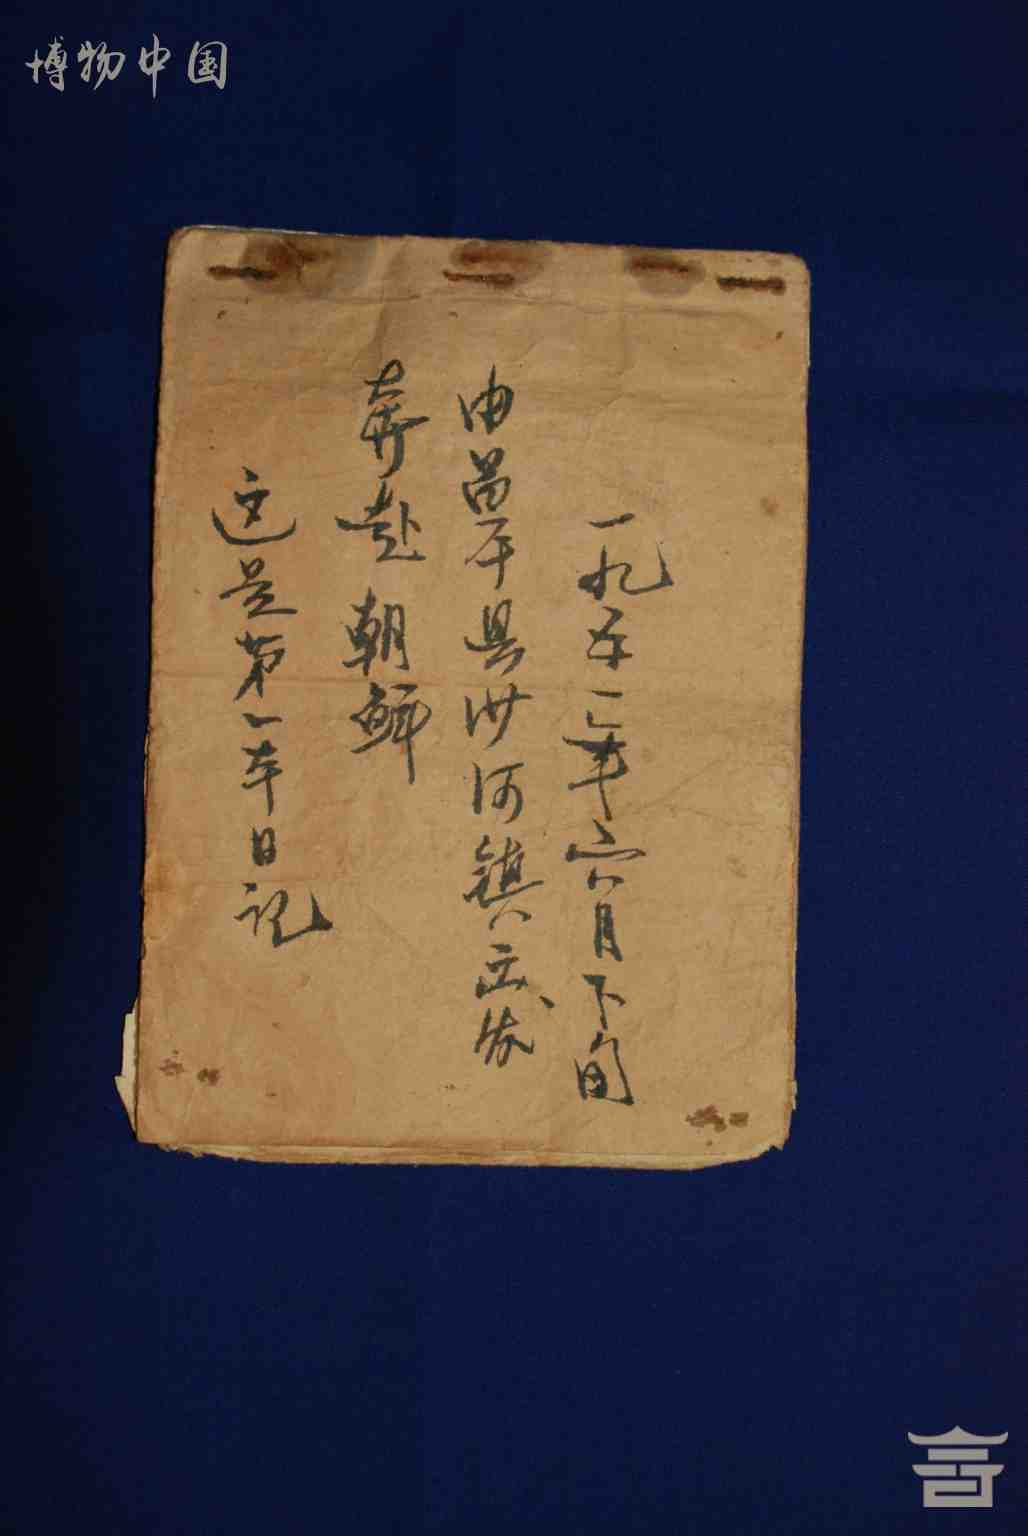 博物中国
一九五一年六月下旬
由昌平县沙河镇出发
奔赴朝鲜
这是第一本日记